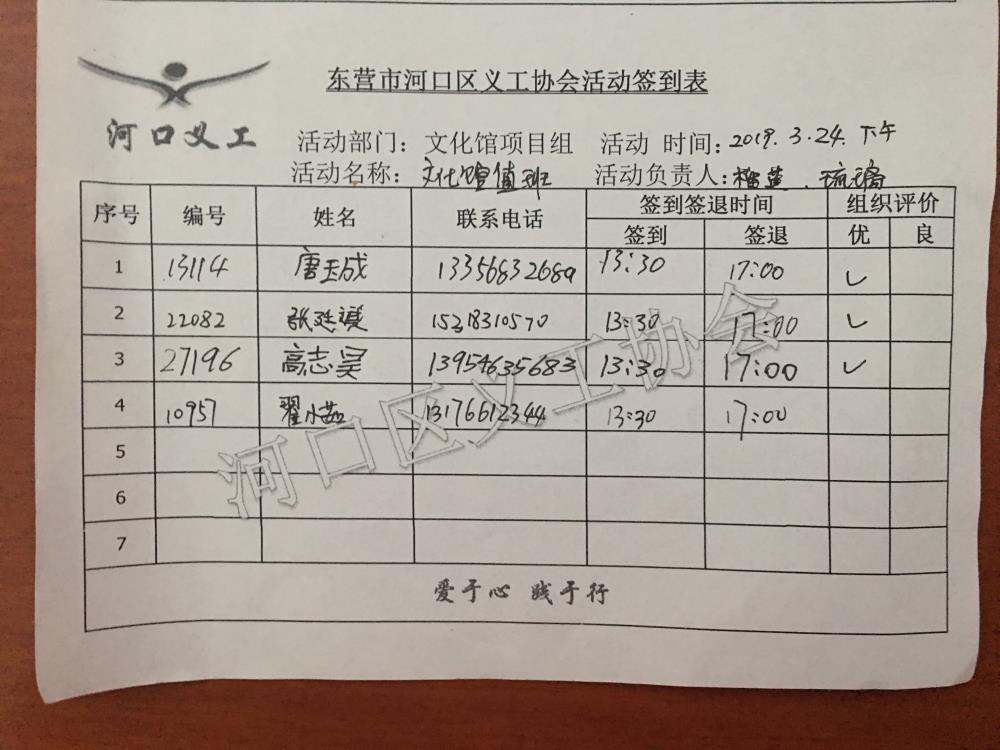 东营市河口区义工协会活动签到表
河口义工
活动部门：文化馆项目组 活动 时间：2019.3.24.下午
活动名称：文化馆值班 活动负责人：
序号 编号 姓名 联系电话 签到签退时间 组织评价
签到 签退 优 良
1 13114 唐玉成 13356832689 13:30 17:00 ✓
2 22082 张廷 15218310570 13:30 17:00 ✓
3 27196 高志昊 13954635683 13:30 17:00 ✓
4 10957 翟小茹 13176612344 13:30 17:00
5
6
7
爱于心 践于行
河口区义工协会